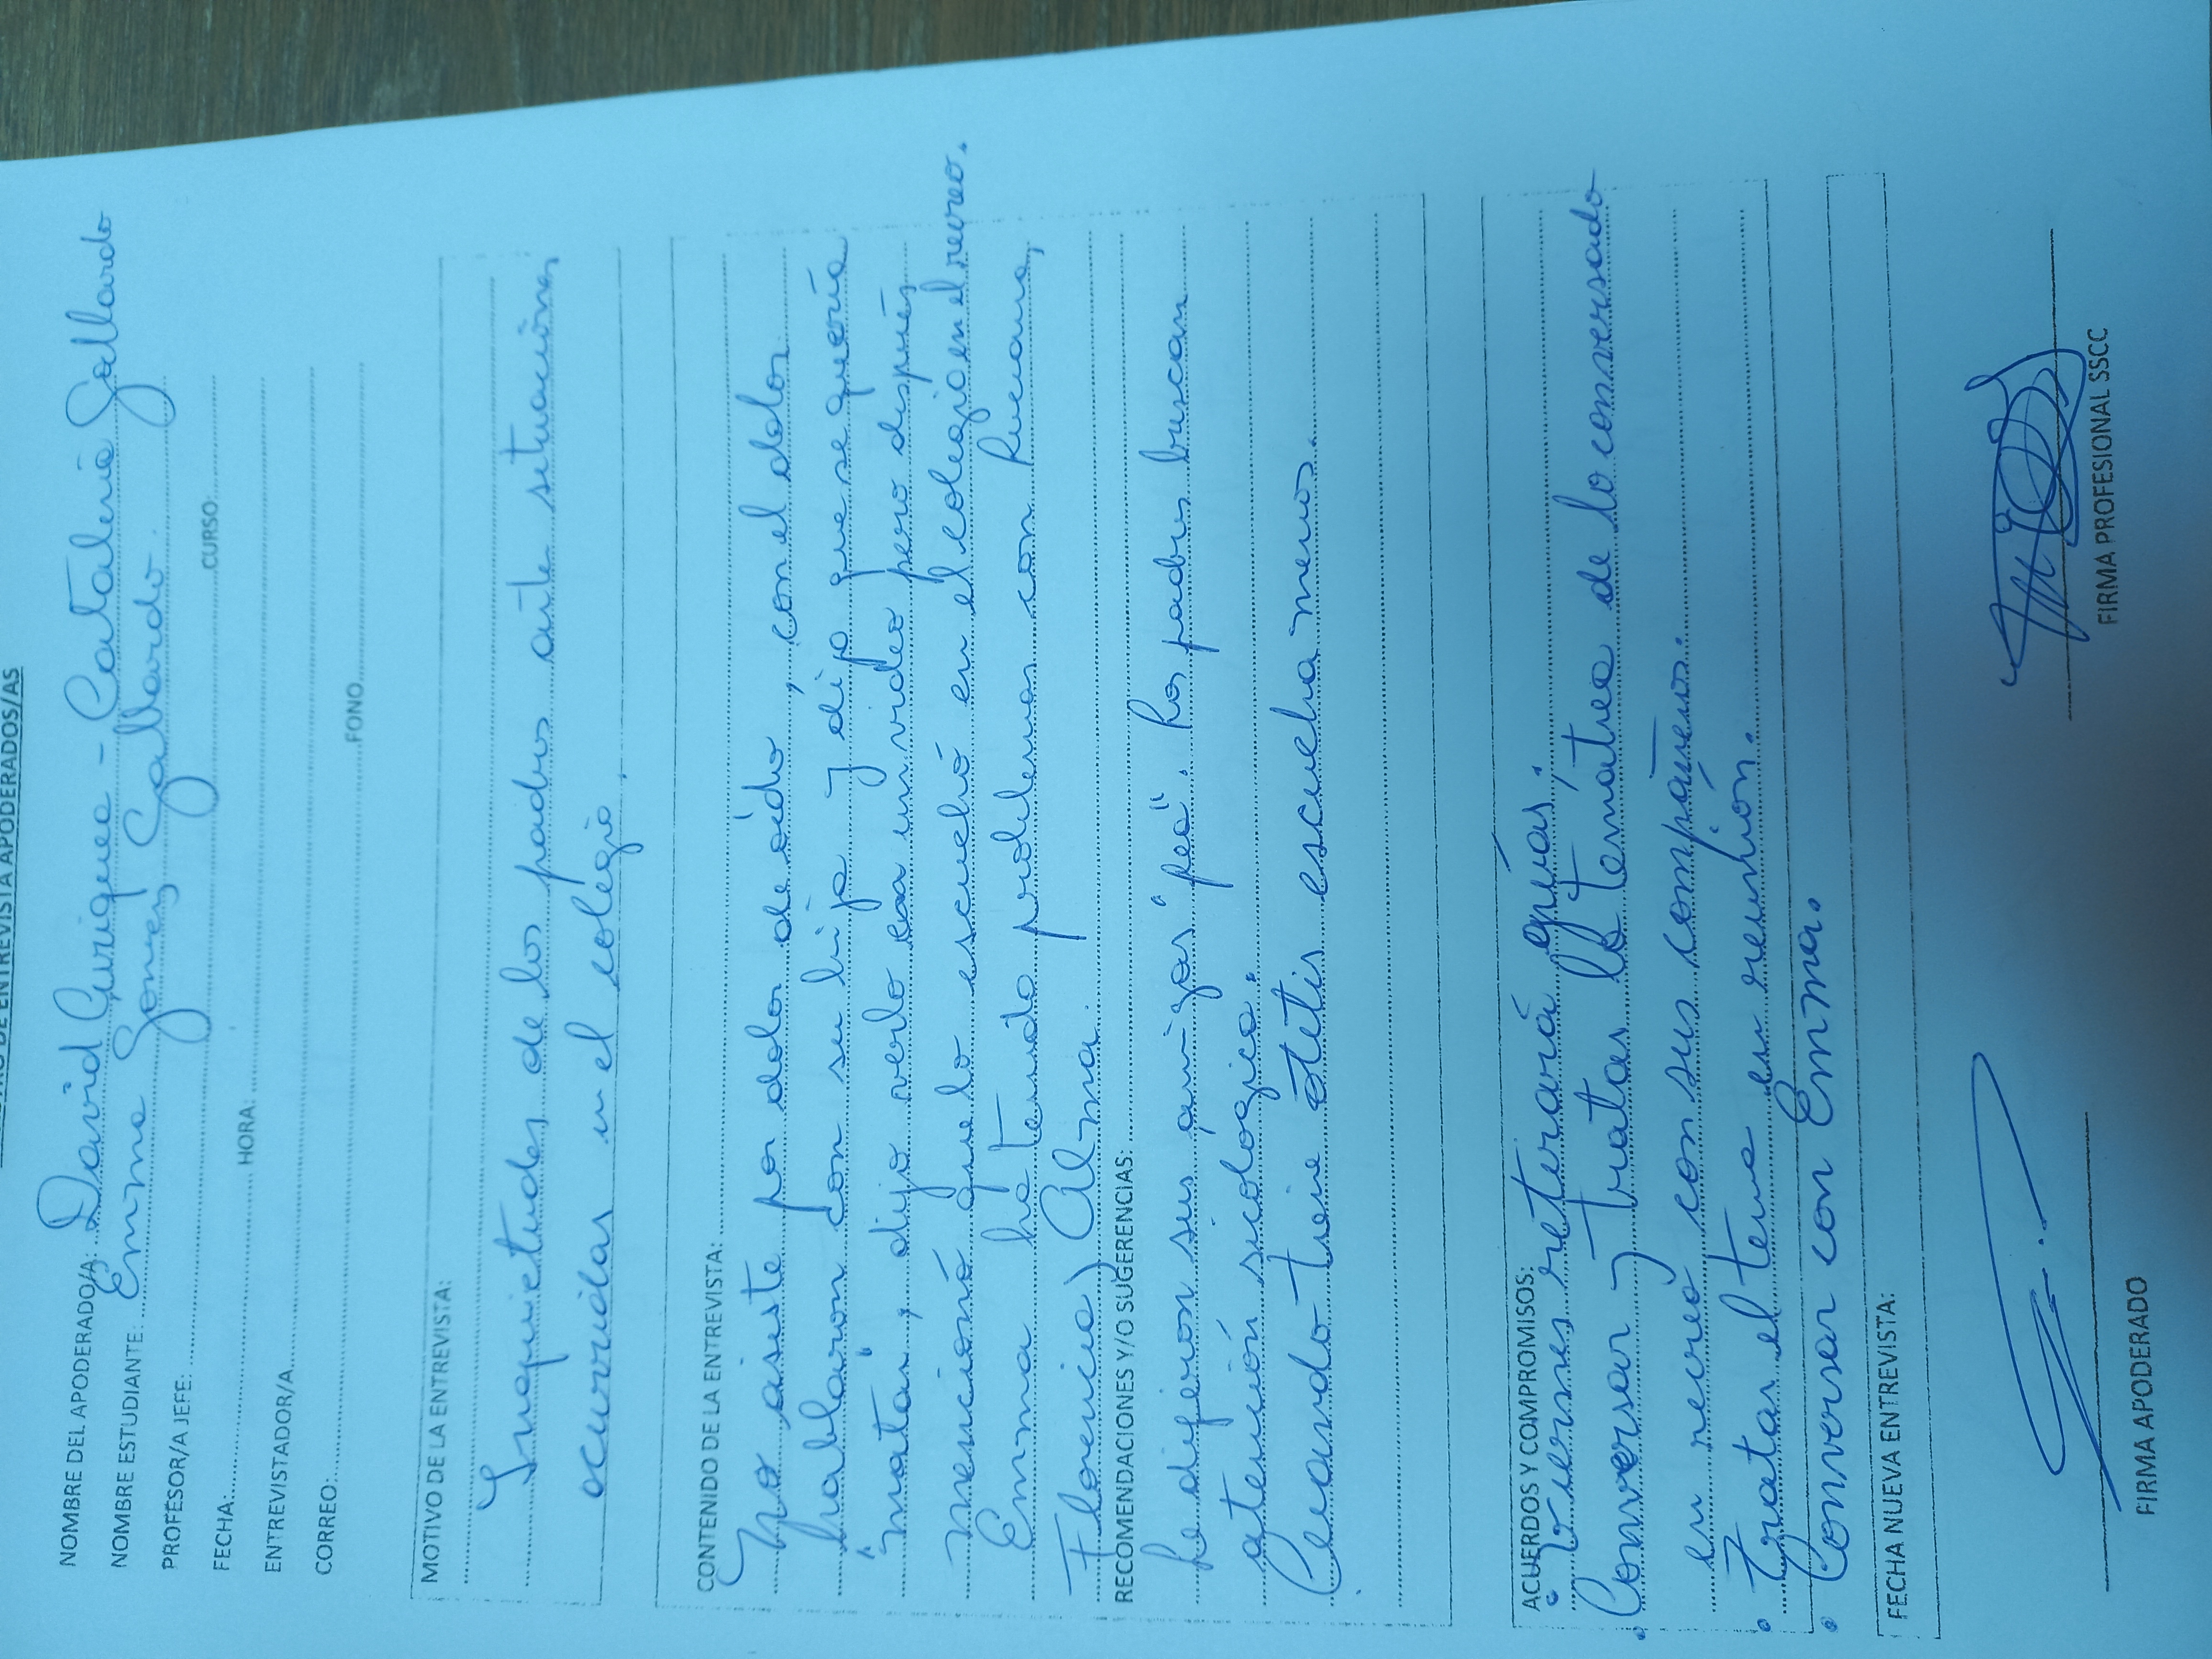 REGISTRO DE ENTREVISTA APODERADOS/AS
NOMBRE DEL APODERADO/A: David Curiquea - Catalina Gallardo
NOMBRE ESTUDIANTE: Emma Gomez Gallardo.
PROFESOR/A JEFE: CURSO:
FECHA: HORA:
ENTREVISTADOR/A
CORREO: FONO
MOTIVO DE LA ENTREVISTA:
Inquietudes de los padres ante situaciones
ocurridas en el colegio.
CONTENIDO DE LA ENTREVISTA:
No asiste por dolor de oído, con el dolor
hablaron con su hija y dijo que se quería
"matar", dijo verlo en un video pero después
mencionó que lo escuchó en el colegio en el recreo.
Emma ha tenido problemas con Luciana,
Florencia y Alma.
RECOMENDACIONES Y/O SUGERENCIAS:
Le dijeron sus amigas "fea". Los padres buscan
atención sicologica.
Cuando tiene otitis escucha menos.
ACUERDOS Y COMPROMISOS:
• Viernes retirará guías.
• Conversar y tratar la temática de lo conversado
en recreo con sus compañeros.
• Tratar el tema en reunión.
• Conversar con Emma.
FECHA NUEVA ENTREVISTA:
FIRMA APODERADO FIRMA PROFESIONAL SSCC